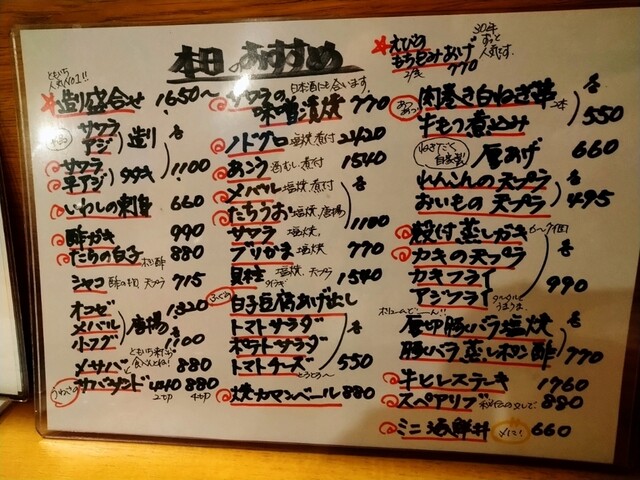 本日のおすすめ
ともいち
人気No1!!
造り盛合せ 1650〜
サワラ
アジ
造り 各
サワラ
平アジ
タタキ 1100
いわしの刺身 660
酢ガキ 990
たらの白子 ポン酢 880
シャコ 酢の物 天プラ 715
オコゼ 1320
メバル
小フグ
唐揚 各
1100
メサバ 880
サバサンド 440 880
2切 4切
日本酒にも合います。
サワラの
味噌漬焼 770
ノドグロ 塩焼 煮付 2420
あこう 酒むし 煮付 1540
メバル 塩焼 煮付
たちうお 塩焼 唐揚
サワラ 塩焼
各
1100
ブリかま 塩焼 770
貝柱 塩焼 天プラ 1540
白子豆腐あげ出し
トマトサラダ
ポテトサラダ
トマトチーズ
各
550
焼カマンベール 880
えびの
もちもちあげ
2本 770
30年
ずっと
人気です。
あつあつ
肉巻き白ねぎ串 2本
牛もつ煮込み
各
550
唐あげ 660
れんこんの天プラ
おいもの天プラ
各
495
殻付蒸しガキ 6〜7個
カキの天プラ
カキフライ
アジフライ
各
990
厚切豚バラ塩焼
豚バラ蒸しポン酢
各
770
牛ヒレステーキ 1760
スペアリブ 秘伝のタレで 880
ミニ海鮮丼 660